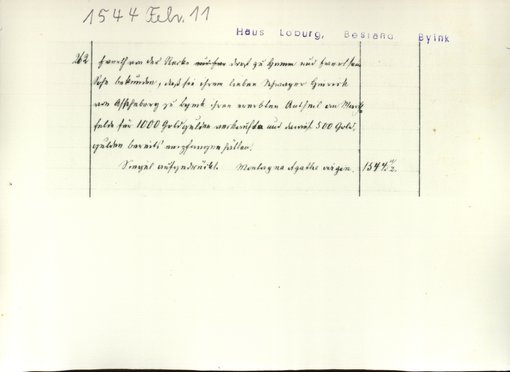 1544 Febr. 11
Haus Loburg, Bestand Byink
262 Evert von der Recke Drost zu Hamm und Evert sein
Sohn bekunden, daß sie ihrem lieben Schwager Hinrick
von Ascheberg zu Byink ihren ererbten Antheil am
felde für 1000 Goldgulden verkauften und darauf 500 Gold,
gulden bereits empfangen hätten.
Siegel aufgedrückt. Montag na Agathe virgen. 1544 11/2.